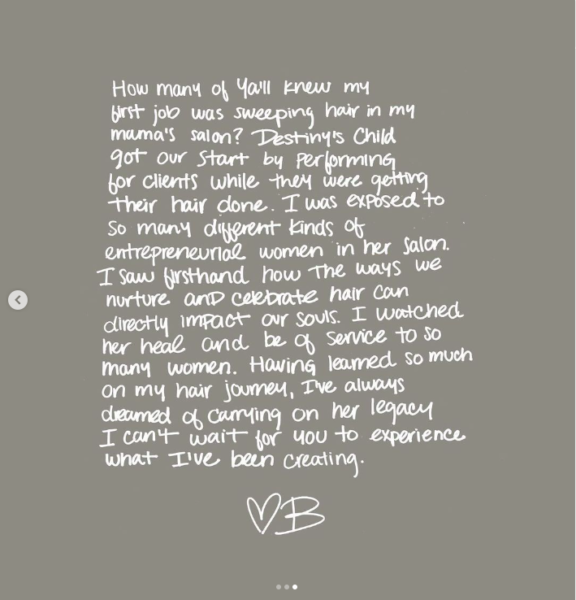 How many of Ya'll knew my
first job was sweeping hair in my
mama's salon? Destiny's Child
got our start by performing
for clients while they were getting
their hair done. I was exposed to
so many different kinds of
entrepreneurial women in her salon.
I saw firsthand how the ways we
nurture and celebrate hair can
directly impact our souls. I watched
her heal and be of service to so
many women. Having learned so much
on my hair journey, I've always
dreamed of carrying on her legacy
I can't wait for you to experience
what I've been creating.
♡B